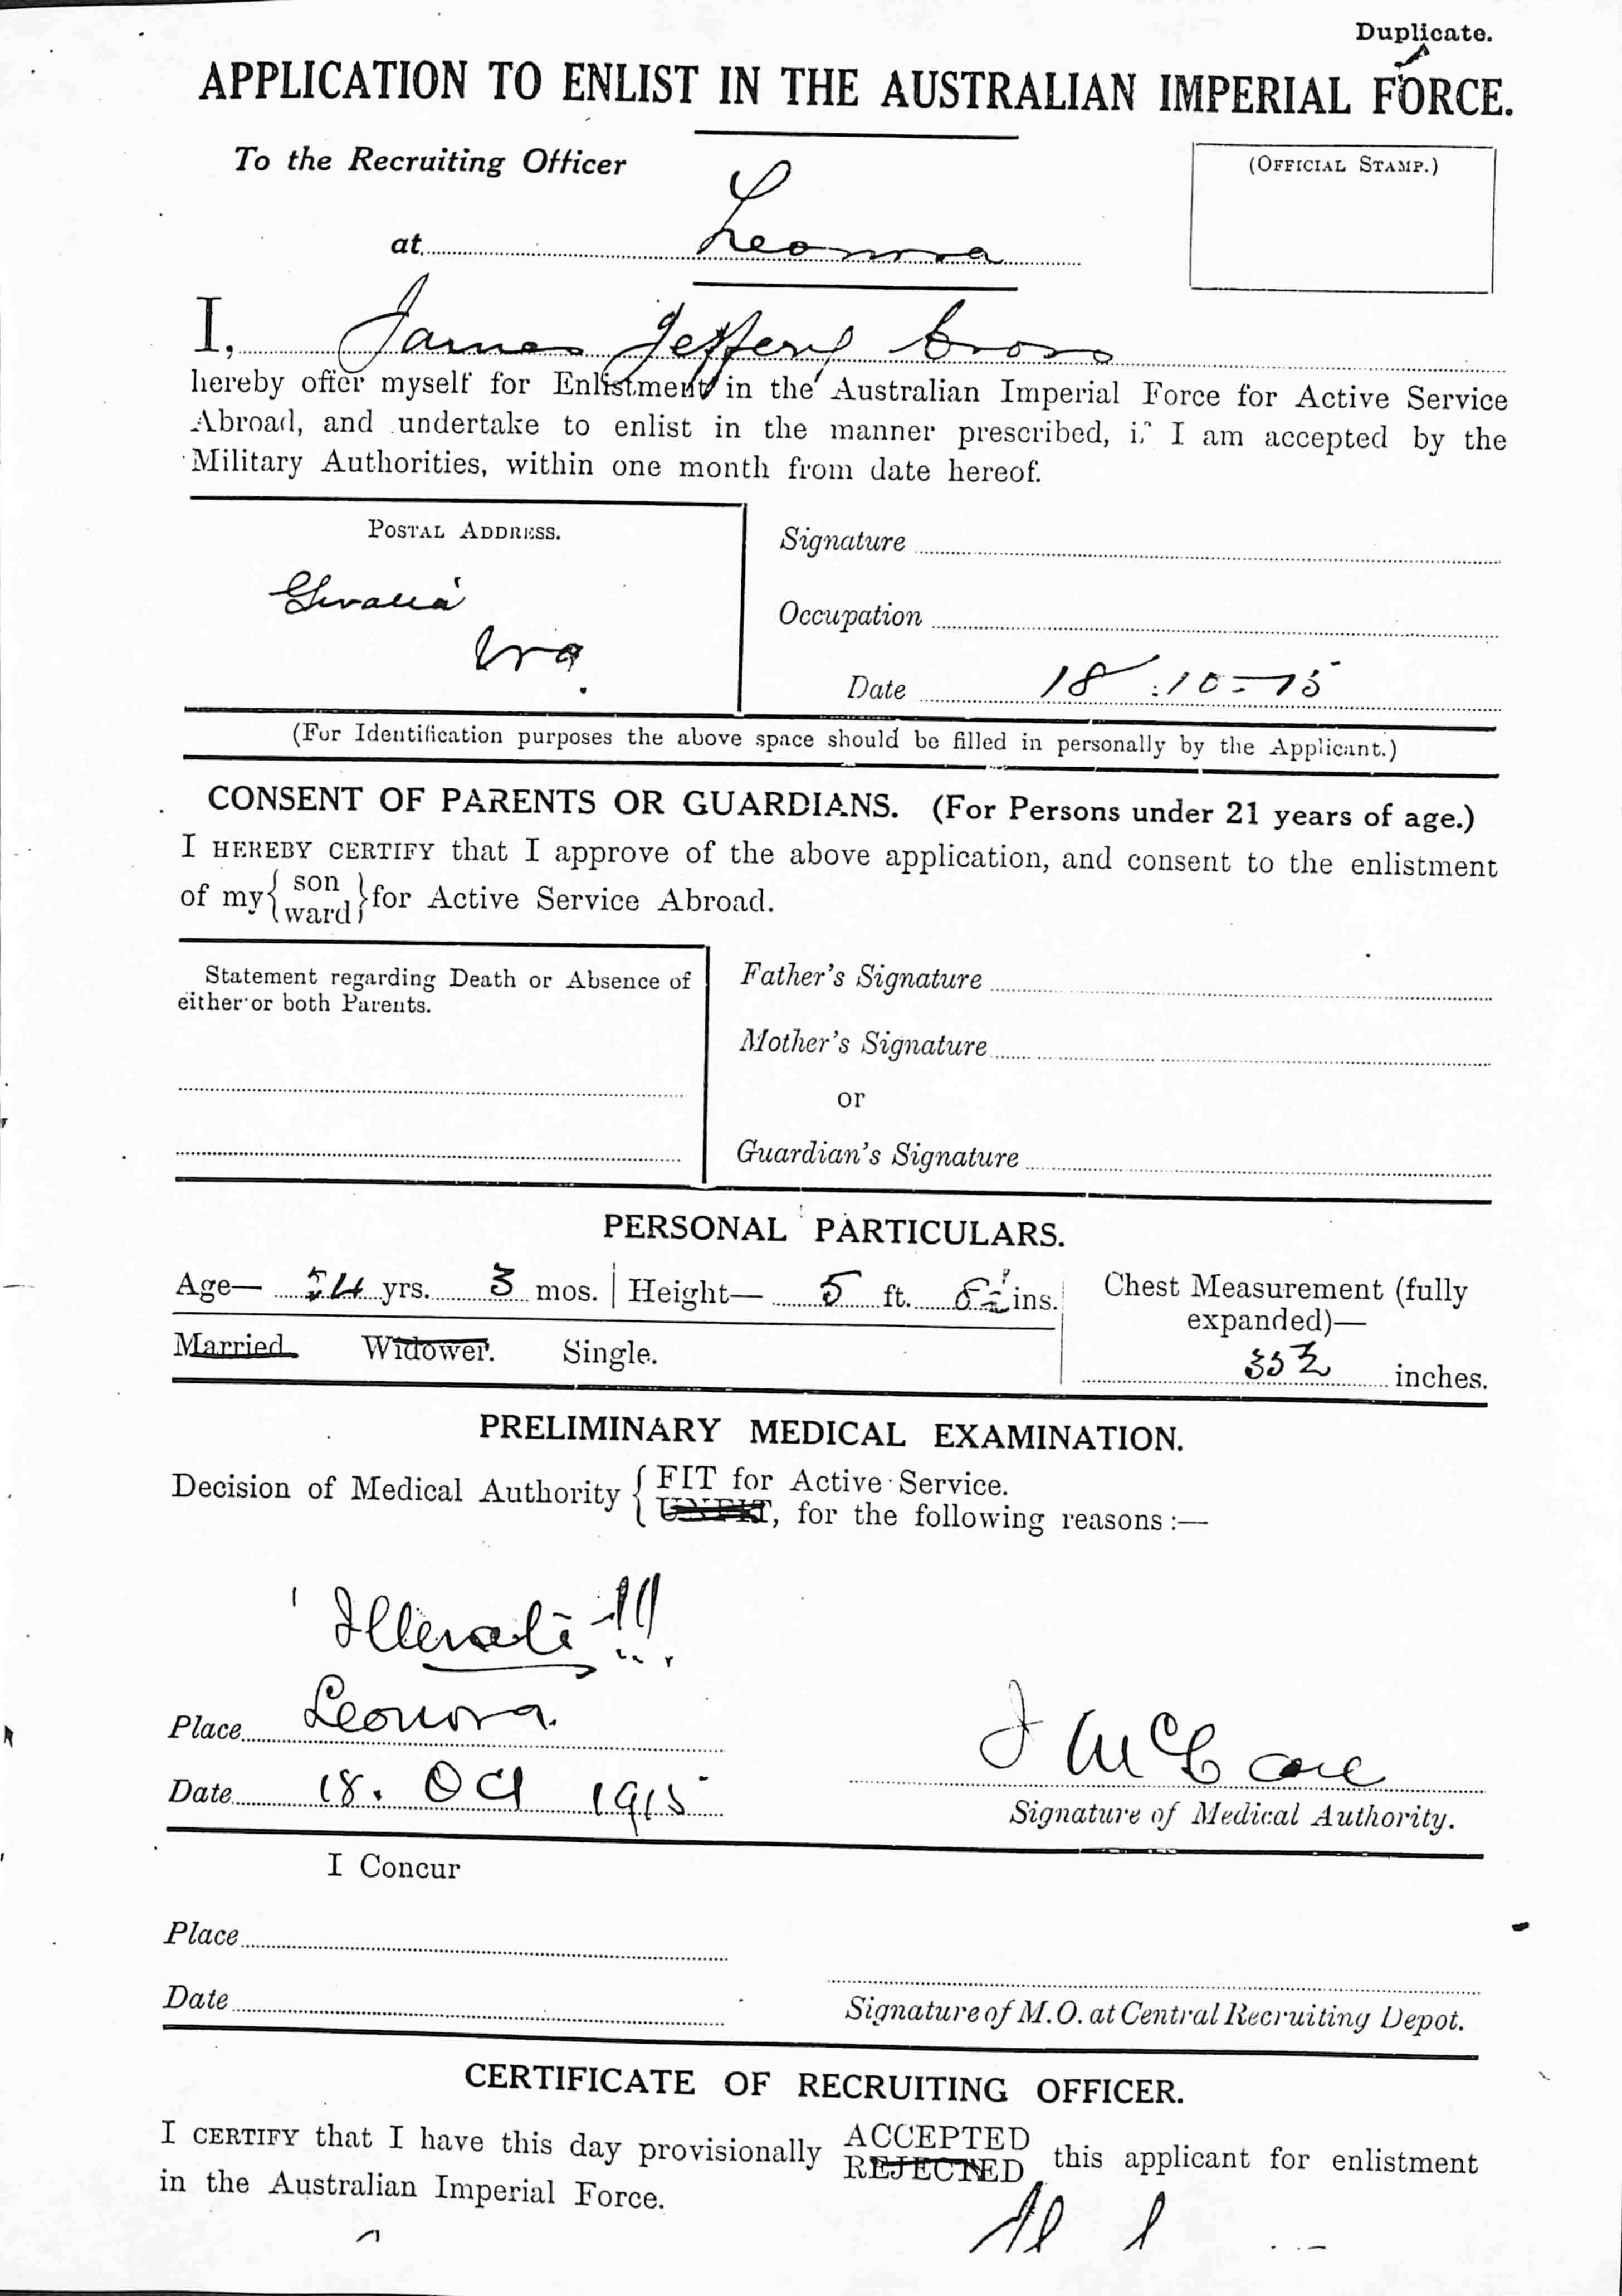 Duplicate.
APPLICATION TO ENLIST IN THE AUSTRALIAN IMPERIAL FORCE.
To the Recruiting Officer
(OFFICIAL STAMP.)
at Leonora
I, James Jeffery Cross
hereby offer myself for Enlistment in the Australian Imperial Force for Active Service
Abroad, and undertake to enlist in the manner prescribed, if I am accepted by the
Military Authorities, within one month from date hereof.
POSTAL ADDRESS.
Gwalia
Signature
Occupation
Date 18.10-15
(For Identification purposes the above space should be filled in personally by the Applicant.)
CONSENT OF PARENTS OR GUARDIANS. (For Persons under 21 years of age.)
I HEREBY CERTIFY that I approve of the above application, and consent to the enlistment
of my { son ward } for Active Service Abroad.
Statement regarding Death or Absence of
either or both Parents.
Father's Signature
Mother's Signature
or
Guardian's Signature
PERSONAL PARTICULARS.
Age— 24 yrs. 3 mos. | Height— 5 ft. ins.
Chest Measurement (fully
expanded)—
inches.
Married. Widower. Single.
PRELIMINARY MEDICAL EXAMINATION.
Decision of Medical Authority { FIT for Active Service.
UNFIT, for the following reasons :—
Illerate !!!
Place Leonora.
Date 18. Oct 1915
Signature of Medical Authority.
I Concur
Place
Date
Signature of M.O. at Central Recruiting Depot.
CERTIFICATE OF RECRUITING OFFICER.
I CERTIFY that I have this day provisionally ACCEPTED REJECTED this applicant for enlistment
in the Australian Imperial Force.